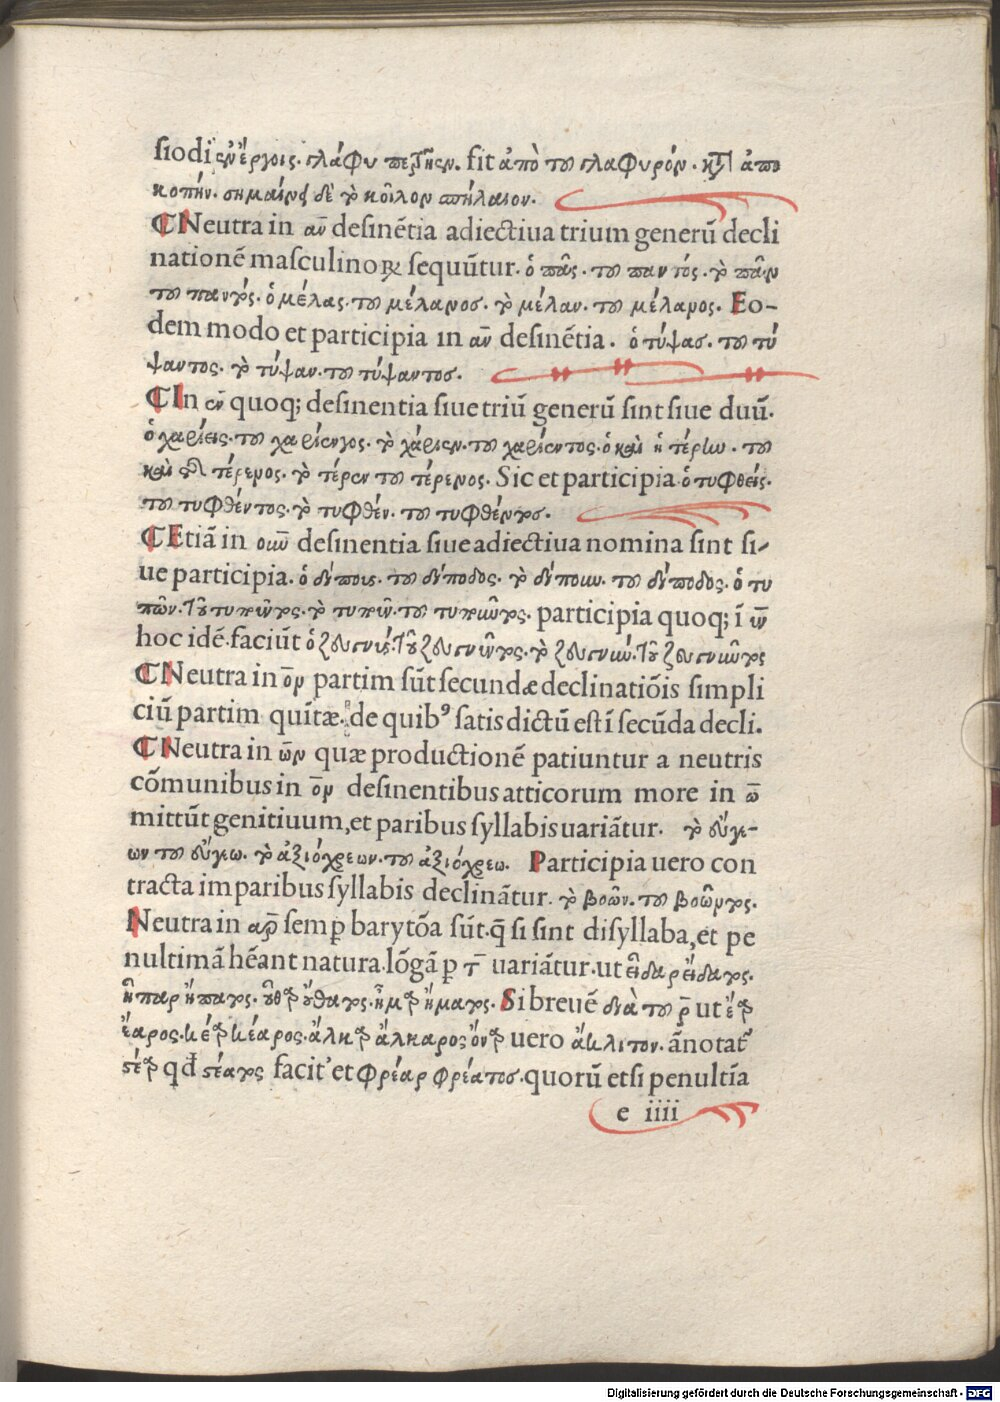 siodi ἐν ἔργοις. γλάφυ πετρῆεν. fit ἀπὸ τοῦ γλαφυρόν. κατ ἀπο
κοπήν. σημαίνει δὲ τὸ κοῖλον σπήλαιον.
¶Neutra in αν̄ desinētia adiectiua trium generū decli
nationē masculinoꝝ sequūtur. ὁ πᾶς. τοῦ παντός. τὸ πᾶν
τοῦ παντός. ὁ μέλας. τοῦ μέλανοσ. τὸ μέλαν. τοῦ μέλανος. Eo-
dem modo et participia in αν̄ desinētia. ὁ τύψασ. τοῦ τύ
ψαντος. τὸ τύψαν. τοῦ τύψαντοσ.
¶In εν̄ quoq; desinentia siue triū generū sint siue duū.
ὁ χαρίεις. τοῦ χαρίεντος. τὸ χάριεν. τοῦ χαρίεντος. ὁ καὶ ἡ τέρην. τοῦ
καὶ τῆς τέρενος. τὸ τέρεν τοῦ τέρενος. Sic et participia ὁ τυφθείς.
τοῦ τυφθέντος. τὸ τυφθέν. τοῦ τυφθέντοσ.
¶Etiā in ουν̄ desinentia siue adiectiua nomina sint si-
ue participia. ὁ δίπους. τοῦ δίποδος. τὸ δίπουν. τοῦ δίποδος. ὁ τυ
πῶν. τοῦ τυποῦντος. τὸ τυποῦν. τοῦ τυποῦντος. participia quoq; ī ῡν
hoc idē faciūt ὁ ζευγνύς. τοῦ ζευγνύντος. τὸ ζευγνύν. τοῦ ζευγνύντος
¶Neutra in ον̄ partim sūt secundæ declinatiōis simpli
ciū partim quītæ. de quibꝰ satis dictū est ī secūda decli.
¶Neutra in ων̄ quæ productionē patiuntur a neutris
cōmunibus in ον̄ desinentibus atticorum more in ω̄
mittūt genitiuum, et paribus syllabis uariātur. τὸ εὔγε-
ων τοῦ εὔγεω. τὸ ἀξιόχρεων. τοῦ ἀξιόχρεω. Participia uero con
tracta imparibus syllabis declinātur. τὸ βοῶν. τοῦ βοῶντος.
Neutra in αρ̄ semꝑ barytōa sūt. q̄ si sint disyllaba, et pe
nultimā hēant natura lōgā ꝑ τ̄ uariātur. ut εἶδαρ εἴδατος.
ἧπαρ ἥπατος. οὖθαρ οὔθατος. ἦμαρ ἤματος. Si breuē διὰ τοῦ ρ̄ ut ἔαρ
ἔαρος. κέαρ κέαρος. ἄλκαρ ἄλκαρος ὄναρ uero ἄκλιτον. ānotat᷑
στέαρ qđ στέατος facit' et φρέαρ φρέατοσ. quorū etsi penultīa
e iiii
Digitalisierung gefördert durch die Deutsche Forschungsgemeinschaft - DFG